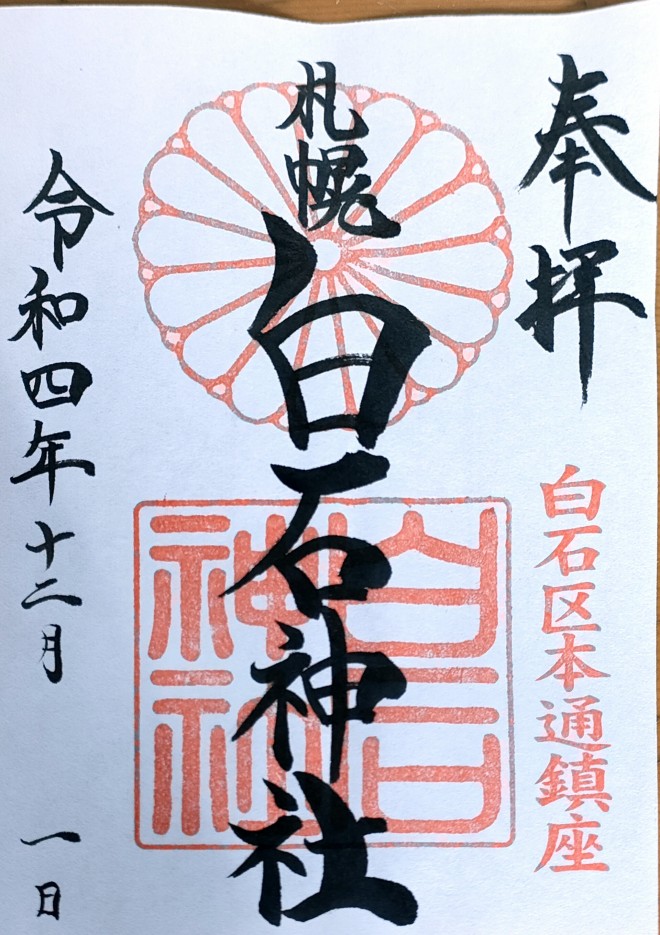 奉拝
白石区本通鎮座
札幌
白石神社
白石神社
令和四年十二月
一日